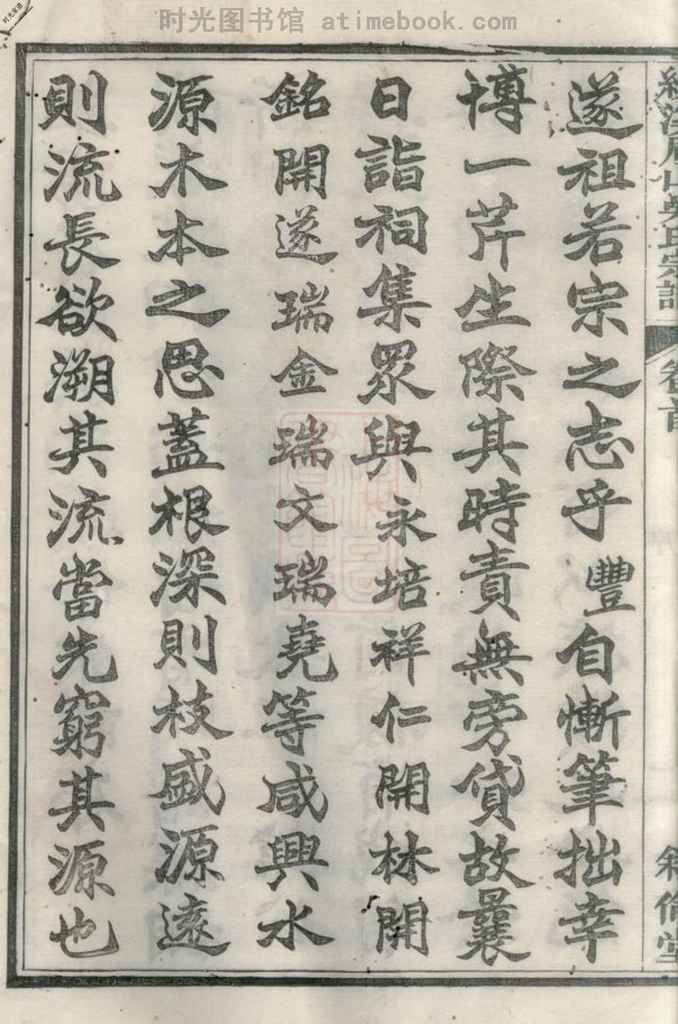 时光图书馆 atimebook.com
吳氏宗譜
卷首
敘倫堂
遂祖若宗之志乎豐自慚筆拙幸
博一芹生際其時責無旁貸故曩
日詣祠集眾與永培祥仁開林開
銘開遂瑞金瑞文瑞堯等咸興水
源木本之思蓋根深則枝盛源遠
則流長欲溯其流當先窮其源也